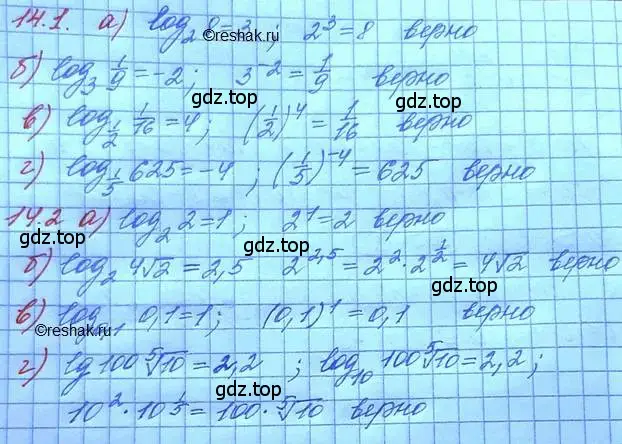 14.1. а) log₂ 8 = 3 ; 2³ = 8 верно
©reshak.ru
б) log₃ 1/9 = -2 ; 3⁻² = 1/9 верно
gdz.top gdz.top
в) log_{1/2} 1/16 = 4 ; (1/2)⁴ = 1/16 верно
г) log_{1/5} 625 = -4 ; (1/5)⁻⁴ = 625 верно
gdz.top
14.2 а) log₂ 2 = 1 ; 2¹ = 2 верно
gdz.top
б) log₂ 4√2 = 2,5 2^{2,5} = 2² · 2^{1/2} = 4√2 верно
gdz.top
в) log 0,1 = 1 ; (0,1)¹ = 0,1 верно
©reshak.ru
г) lg 100 ⁵√10 = 2,2 ; log₁₀ 100 ⁵√10 = 2,2 ;
gdz.top gdz.top
10² · 10^{1/5} = 100 · ⁵√10 верно